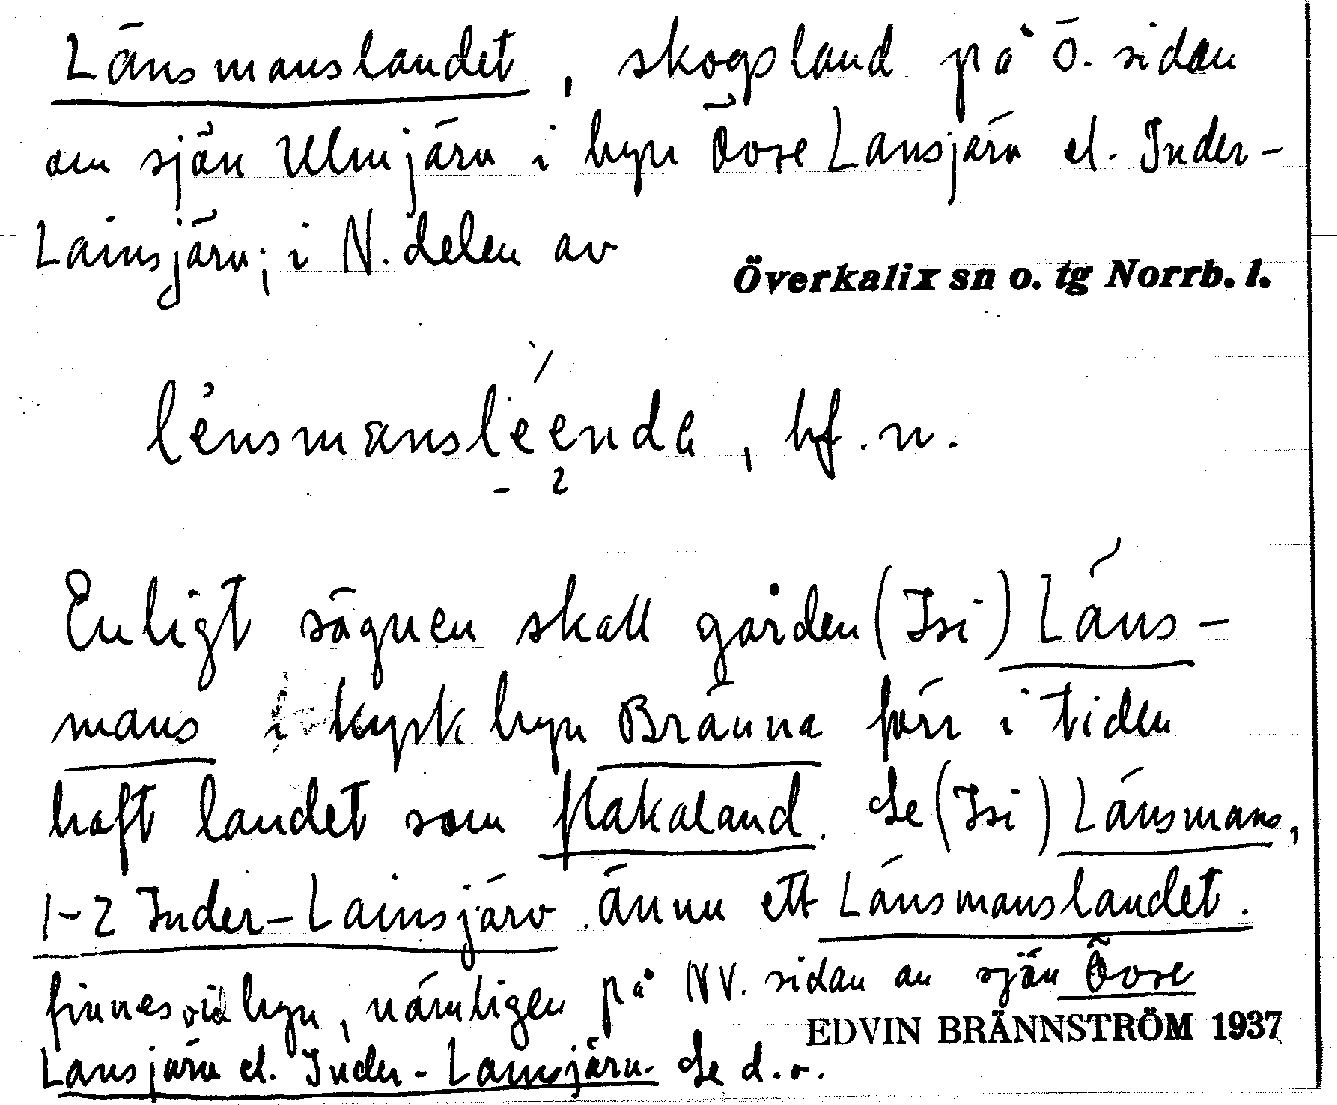 Länsmanslandet, skogsland på Ö. sidan
om sjön Ulmjärv i byn Övre Lansjärv el. Inder-
Lainsjärv; i N. delen av
Överkalix sn o. tg Norrb. l.
lènsmansléenda, bf. n.
Enligt sägnen skall gården (Isi) Läns-
mans i kyrkbyn Bränna förr i tiden
haft landet som flakaland. Se (Isi) Länsmans,
1-2 Inder-Lainsjärv. Ännu ett Länsmanslandet.
finnes vid byn, nämligen på NV. sidan av sjön Övre
EDVIN BRÄNNSTRÖM 1937
Lansjärv el. Inder-Lainsjärv. Se d. o.